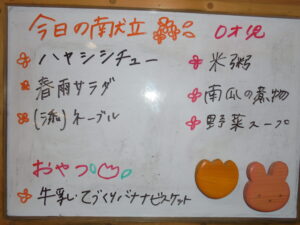 今日の献立
ハヤシシチュー
春雨サラダ
ネーブル
おやつ
牛乳・てづくりバナナビスケット
0才児
米粥
南瓜の煮物
野菜スープ